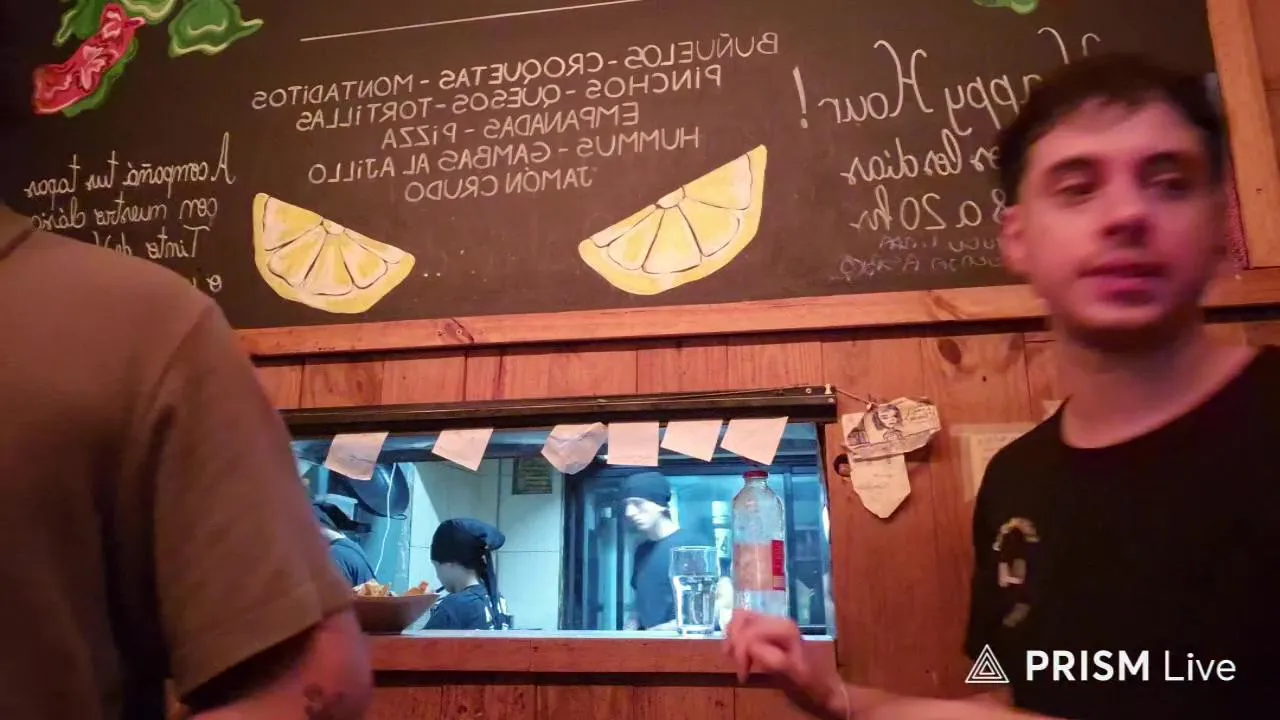 BUÑUELOS - CROQUETAS - MONTADITOS
PINCHOS - QUESOS - TORTILLAS
EMPANADAS - PIZZA
HUMMUS - GAMBAS AL AJILLO
JAMÓN CRUDO
Happy Hour!
los dias
a 20 hs
Acompañá tus tapas
con nuestro clásico
Tinto de
PRISM Live